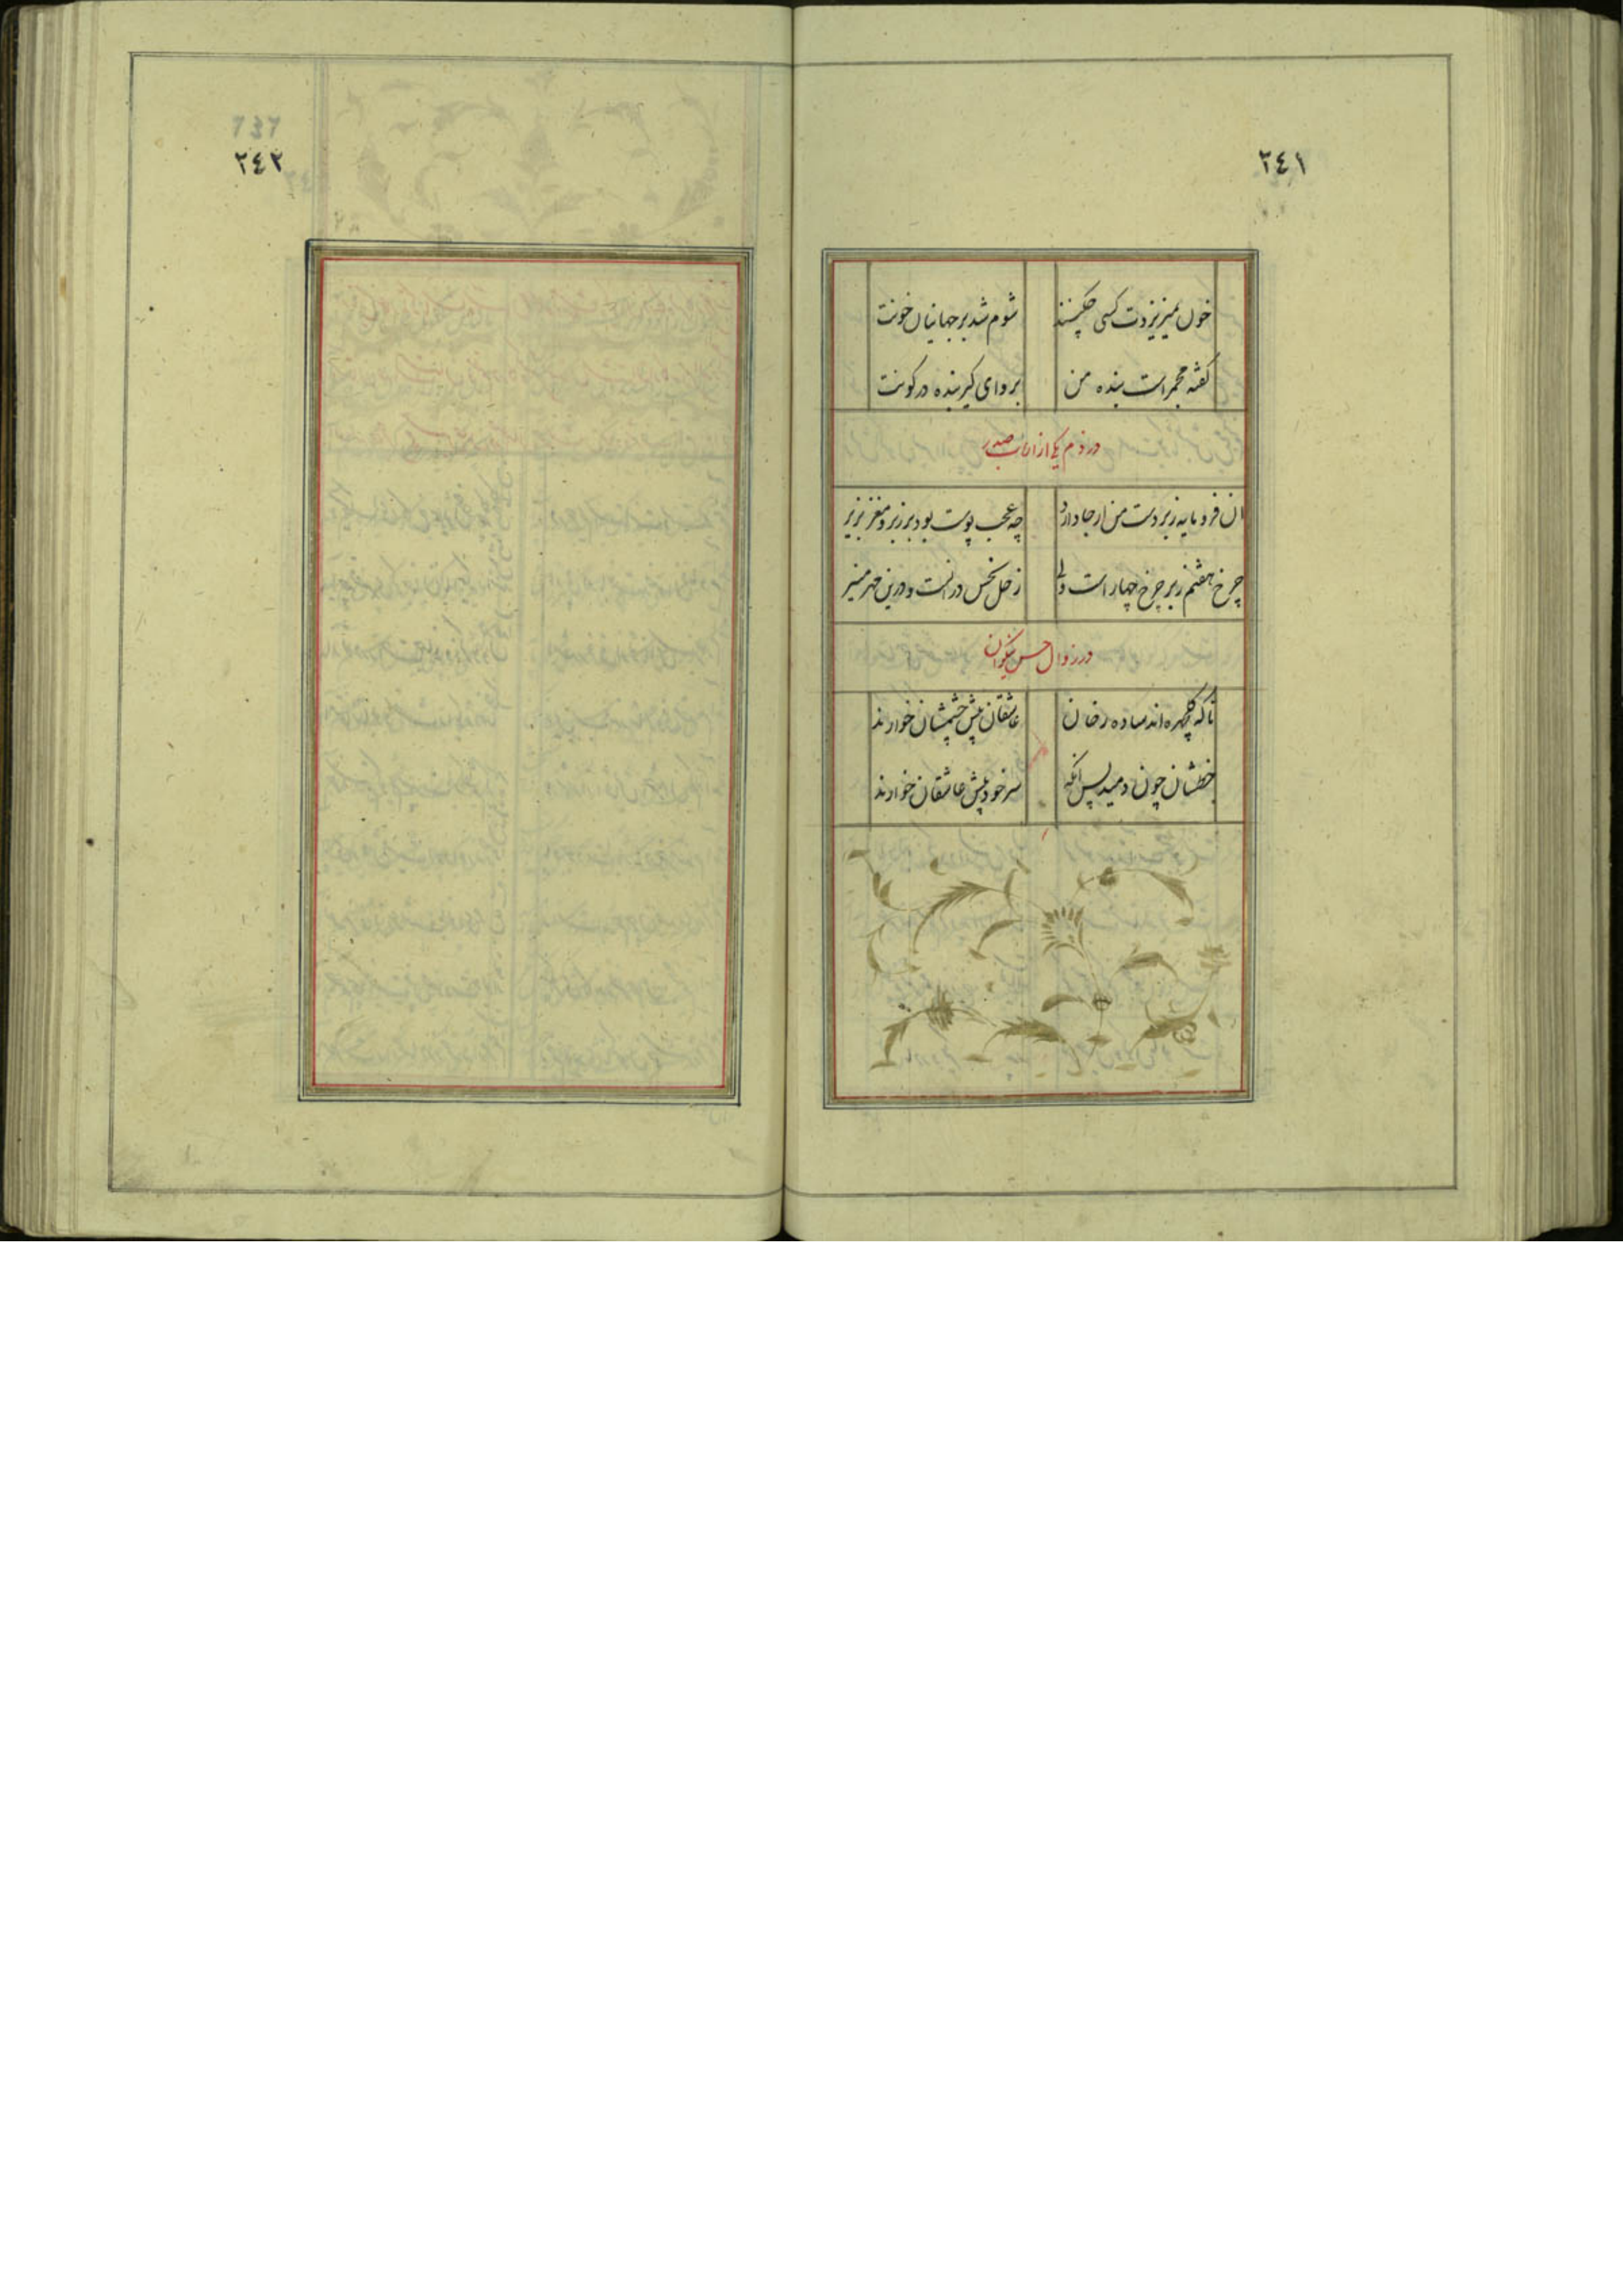 ٢٤١
خون نمیریزدت کسی چکنند
شوم شد بر جهانیان خونت
گفته مجمر است بنده من
بر وای کیر بنده در کونت
در ذم یکی از ارباب صدر
ان فرو مایه زبردست من ار جا دارد
چه عجب پوست بود بر زبر و مغز بزیر
چرخ هفتم زبر چرخ چهار است ولی
زحل نحس در انست و درین مهر منیر
در زوال حسن نیکوان
تا که گلچهره اند ساده رخان
عاشقان پیش چشمشان خوارند
خطشان چون دمید پس انگه
سر خود پیش عاشقان خوارند
737
٢٤٢